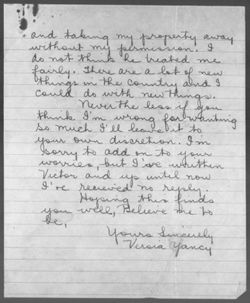 and taking my property away
without my permission. I
do not think he treated me
fairly. There are a lot of new
things in the country and I
could do with new things.
Never the less if you
think I'm wrong for wanting
so much I'll leave it to
your own discretion. I'm
sorry to add on to your
worries, but I've written
Victor and up until now
I've recieved no reply.
Hoping this finds
you well, Believe me to
be,
Yours Sincerely
Yancy